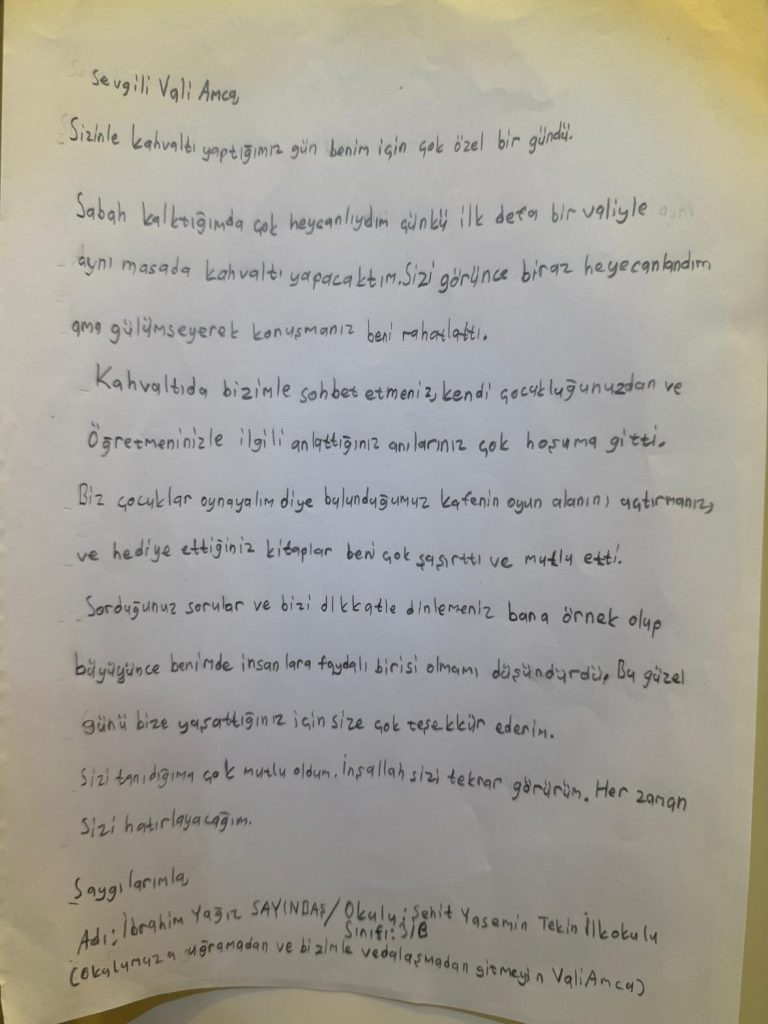 Sevgili Vali Amca,
Sizinle kahvaltı yaptığımız gün benim için çok özel bir gündü.
Sabah kalktığımda çok heycanlıydım çünkü ilk defa bir valiyle
aynı masada kahvaltı yapacaktım. Sizi görünce biraz heyecanlandım
ama gülümseyerek konuşmanız beni rahatlattı.
Kahvaltıda bizimle sohbet etmeniz, kendi çocukluğunuzdan ve
Öğretmeninizle ilgili anlattığınız anılarınız çok hoşuma gitti.
Biz çocuklar oynayalım diye bulunduğumuz kafenin oyun alanını açtırmanız,
ve hediye ettiğiniz kitaplar beni çok şaşırttı ve mutlu etti.
Sorduğunuz sorular ve bizi dikkatle dinlemeniz bana örnek olup
büyüyünce benimde insanlara faydalı birisi olmamı düşündürdü. Bu güzel
günü bize yaşattığınız için size çok teşekkür ederim.
Sizi tanıdığıma çok mutlu oldum. İnşallah sizi tekrar görürüm. Her zaman
sizi hatırlayacağım.
Saygılarımla,
Adı: İbrahim Yağız SAYINBAŞ / Okulu: Şehit Yasemin Tekin İlkokulu
Sınıfı: 3/B
(Okulumuza uğramadan ve bizimle vedalaşmadan gitmeyin Vali Amca)